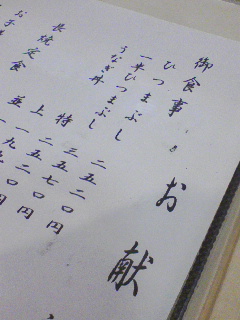 お献
御食事
ひつまぶし
一半ひつまぶし
うなぎ丼 二五二
長焼定食 特 三五七〇円
上 二五二〇円
並 一九